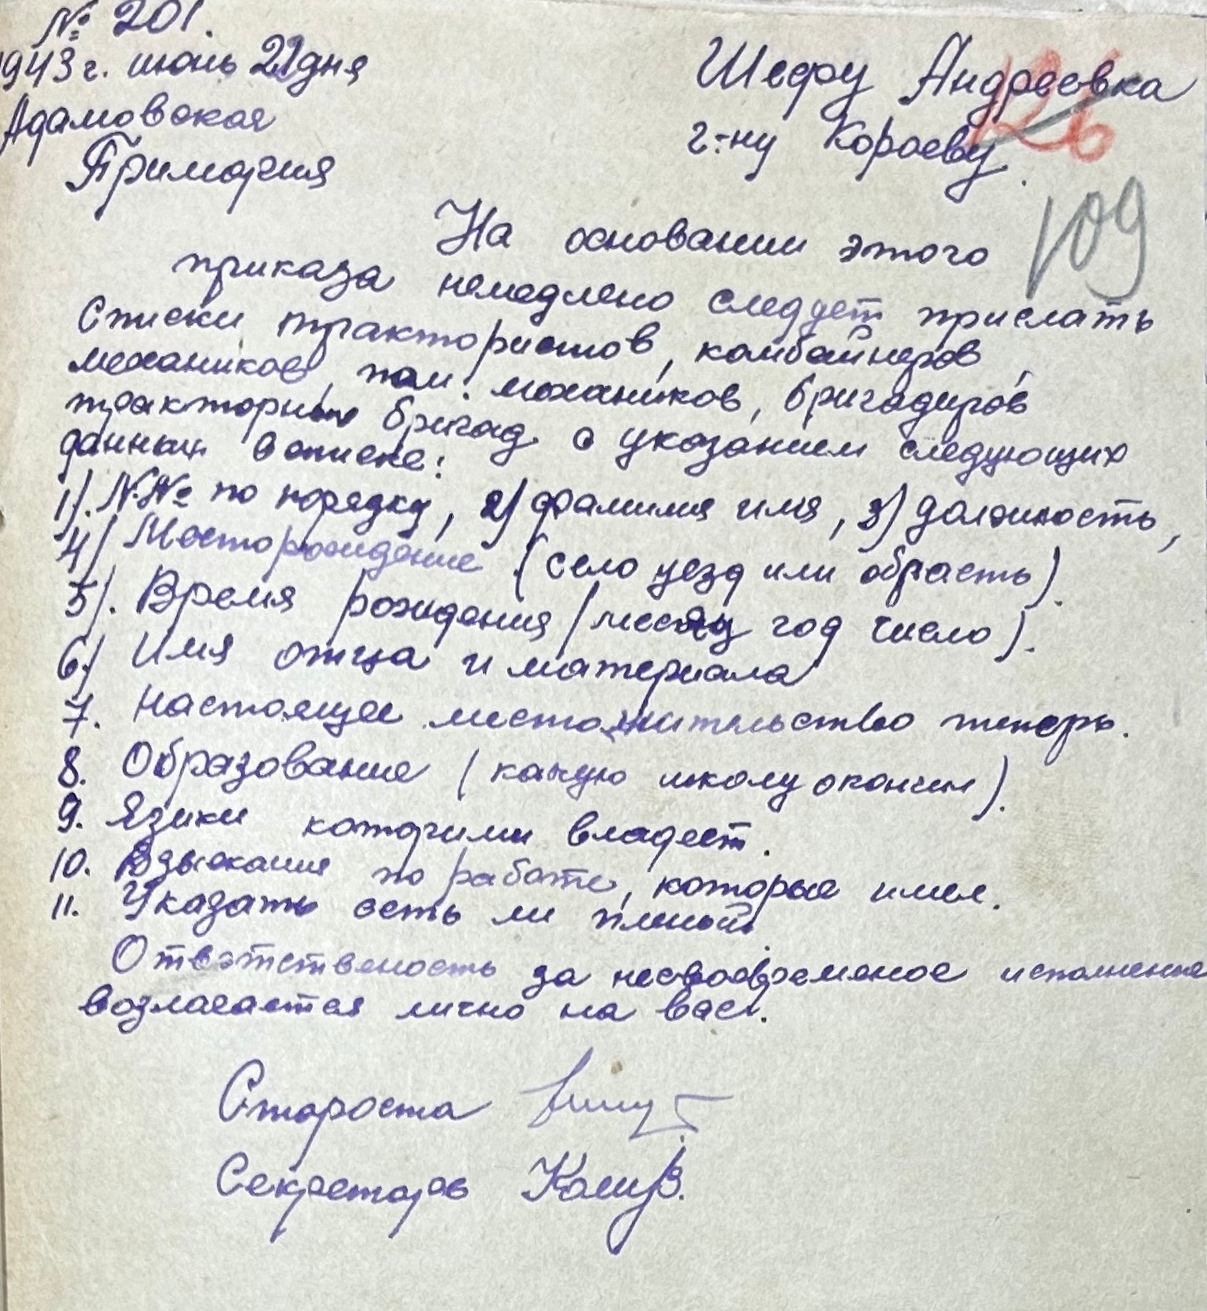 № 201.
1943 г. июнь 21 дня
Адамовская
Примария
Шефу Андреевка
г-ну Короеву.
126
109
На основании этого
приказа немедлено следует прислать
Списки трактористов, комбайнеров,
механиков, пом. механиков, бригадиров
тракторных бригад с указанием следующих
данных в списке:
1). №№ по порядку, 2) фамилия имя, 3) должность,
4) Месторождение (село уезд или область).
5). Время рождения (месяц год число).
6) Имя отца и материала
7. Настоящее место жительство теперь.
8. Образование (какую школу окончил).
9. Языки которими владеет.
10. Взыскания по работе, которые имел.
11. Указать есть ли пленый.
Ответственость за несвоевременое исполнение
возлагается лично на вас.
Староста
Секретарь